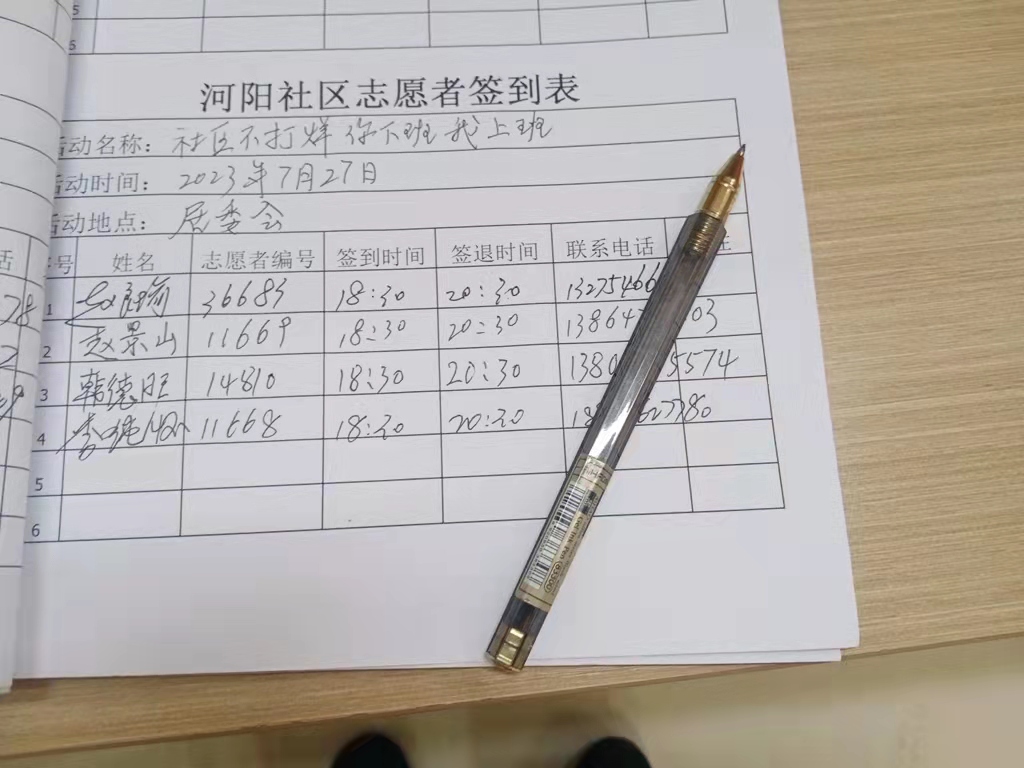 5
6
河阳社区志愿者签到表
活动名称：社区不打烊 你下班我上班
活动时间：2023年7月27日
活动地点：居委会
号 姓名 志愿者编号 签到时间 签退时间 联系电话 注
1 36683 18:30 20:30 13275466
2 赵景山 11669 18:30 20:30 13864 03
3 韩德旺 14810 18:30 20:30 1380 5574
4 11668 18:30 20:30 18
5
6
话
78
2